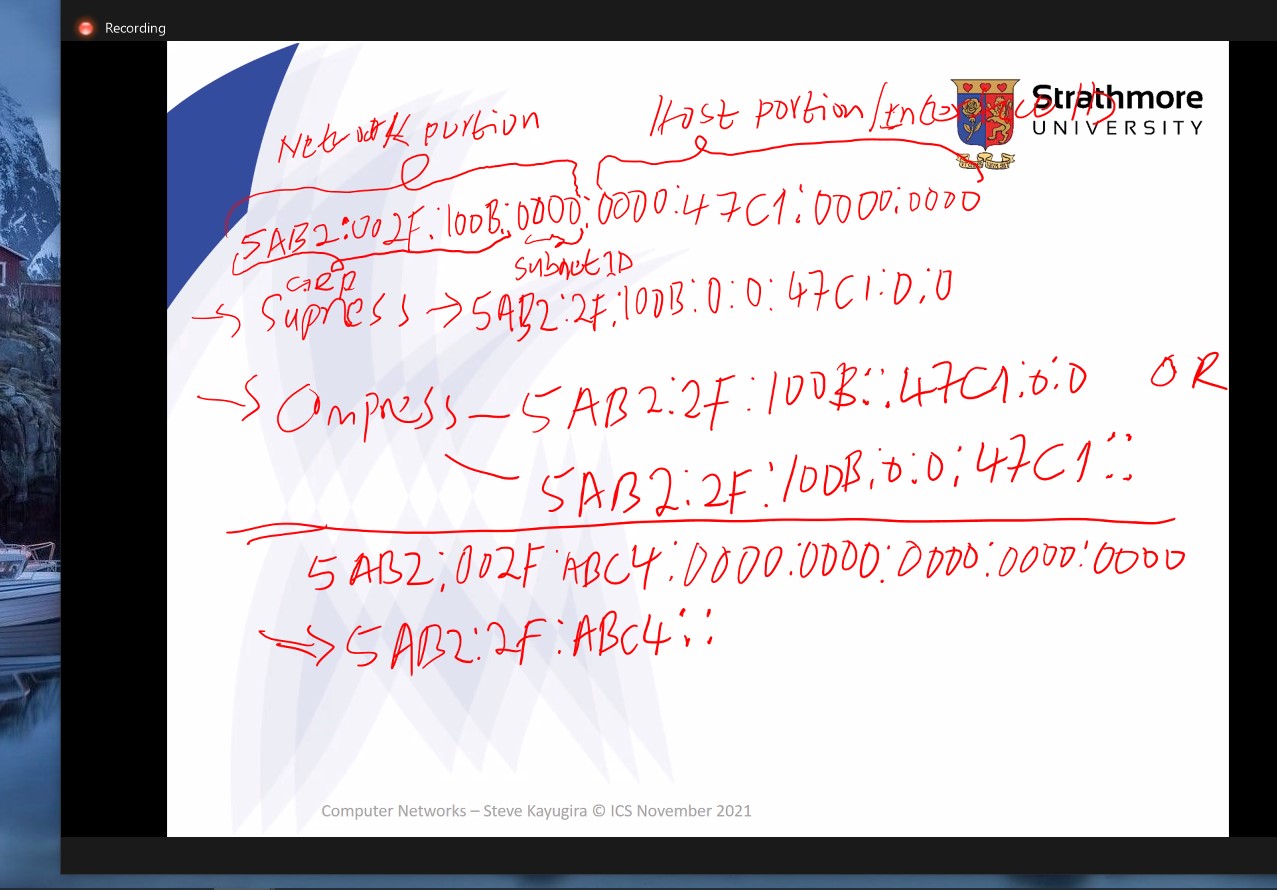 Recording
Strathmore
UNIVERSITY
Network portion
Host portion/
5AB2:002F:100B:0000:0000:47C1:0000:0000
Subnet ID
Supress → 5AB2:2F:100B:0:0:47C1:0:0
→ Compress – 5AB2:2F:100B::47C1:0:0 OR
5AB2:2F:100B:0:0:47C1::
5AB2:002F:ABC4:0000:0000:0000:0000:0000
⇒ 5AB2:2F:ABC4::
Computer Networks – Steve Kayugira © ICS November 2021